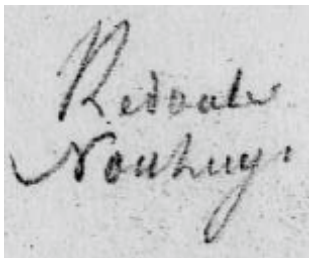 Redoute
Nouhuys